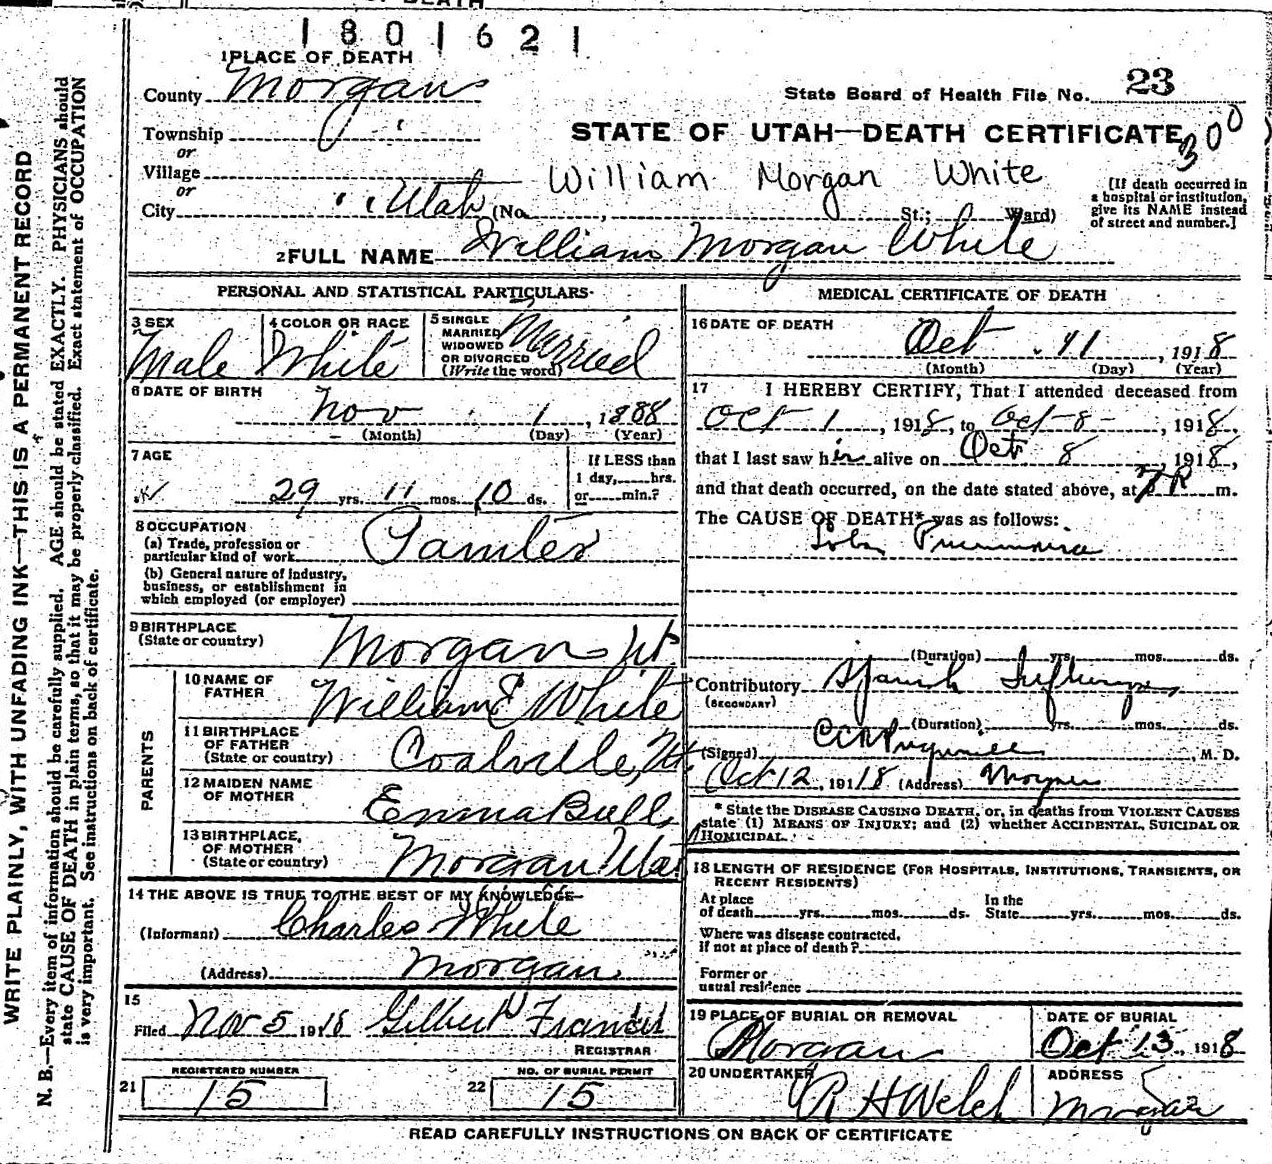 OF DEATH
1801621
1 PLACE OF DEATH
County Morgan
State Board of Health File No. 23
Township
or
STATE OF UTAH—DEATH CERTIFICATE
300
Village
or
William Morgan White
City Utah (No. , St.; Ward)
[If death occurred in
a hospital or institution,
give its NAME instead
of street and number.]
2 FULL NAME William Morgan White
PERSONAL AND STATISTICAL PARTICULARS
3 SEX
Male
4 COLOR OR RACE
White
5 SINGLE
MARRIED
WIDOWED
OR DIVORCED
(Write the word)
Married
6 DATE OF BIRTH
Nov 1, 1888
(Month) (Day) (Year)
7 AGE
29 yrs. 11 mos. 10 ds.
If LESS than
1 day, hrs.
or min.?
8 OCCUPATION
(a) Trade, profession or
particular kind of work
(b) General nature of industry,
business, or establishment in
which employed (or employer)
9 BIRTHPLACE
(State or country)
Morgan Ut
PARENTS
10 NAME OF
FATHER
William E White
11 BIRTHPLACE
OF FATHER
(State or country)
Coalville, Ut
12 MAIDEN NAME
OF MOTHER
Emma Bull
13 BIRTHPLACE,
OF MOTHER
(State or country)
Morgan Uta
14 THE ABOVE IS TRUE TO THE BEST OF MY KNOWLEDGE
(Informant) Charles White
(Address) Morgan
15
Filed Nov 5 1918 Gilbert Francis
REGISTRAR
21 REGISTERED NUMBER
15
22 NO. OF BURIAL PERMIT
15
MEDICAL CERTIFICATE OF DEATH
16 DATE OF DEATH
Oct 11, 1918
(Month) (Day) (Year)
17 I HEREBY CERTIFY, That I attended deceased from
Oct 1, 1918, to Oct 8, 1918,
that I last saw him alive on Oct 8, 1918,
and that death occurred, on the date stated above, at m.
The CAUSE OF DEATH* was as follows:
Pneumonia
(Duration) yrs. mos. ds.
Contributory Spanish Influenza
(SECONDARY)
(Duration) yrs. mos. ds.
(Signed) , M. D.
Oct 12, 1918 (Address) Morgan
* State the DISEASE CAUSING DEATH, or, in deaths from VIOLENT CAUSES
state (1) MEANS OF INJURY; and (2) whether ACCIDENTAL, SUICIDAL OR
HOMICIDAL.
18 LENGTH OF RESIDENCE (FOR HOSPITALS, INSTITUTIONS, TRANSIENTS, OR
RECENT RESIDENTS)
At place
of death yrs. mos. ds.
In the
State yrs. mos. ds.
Where was disease contracted,
if not at place of death?
Former or
usual residence
19 PLACE OF BURIAL OR REMOVAL
Morgan
DATE OF BURIAL
Oct 13, 1918
20 UNDERTAKER
R H Welch
ADDRESS
Morgan
READ CAREFULLY INSTRUCTIONS ON BACK OF CERTIFICATE
WRITE PLAINLY, WITH UNFADING INK—THIS IS A PERMANENT RECORD
N. B.—Every item of information should be carefully supplied. AGE should be stated EXACTLY. PHYSICIANS should
state CAUSE OF DEATH in plain terms, so that it may be properly classified. Exact statement of OCCUPATION
is very important. See instructions on back of certificate.